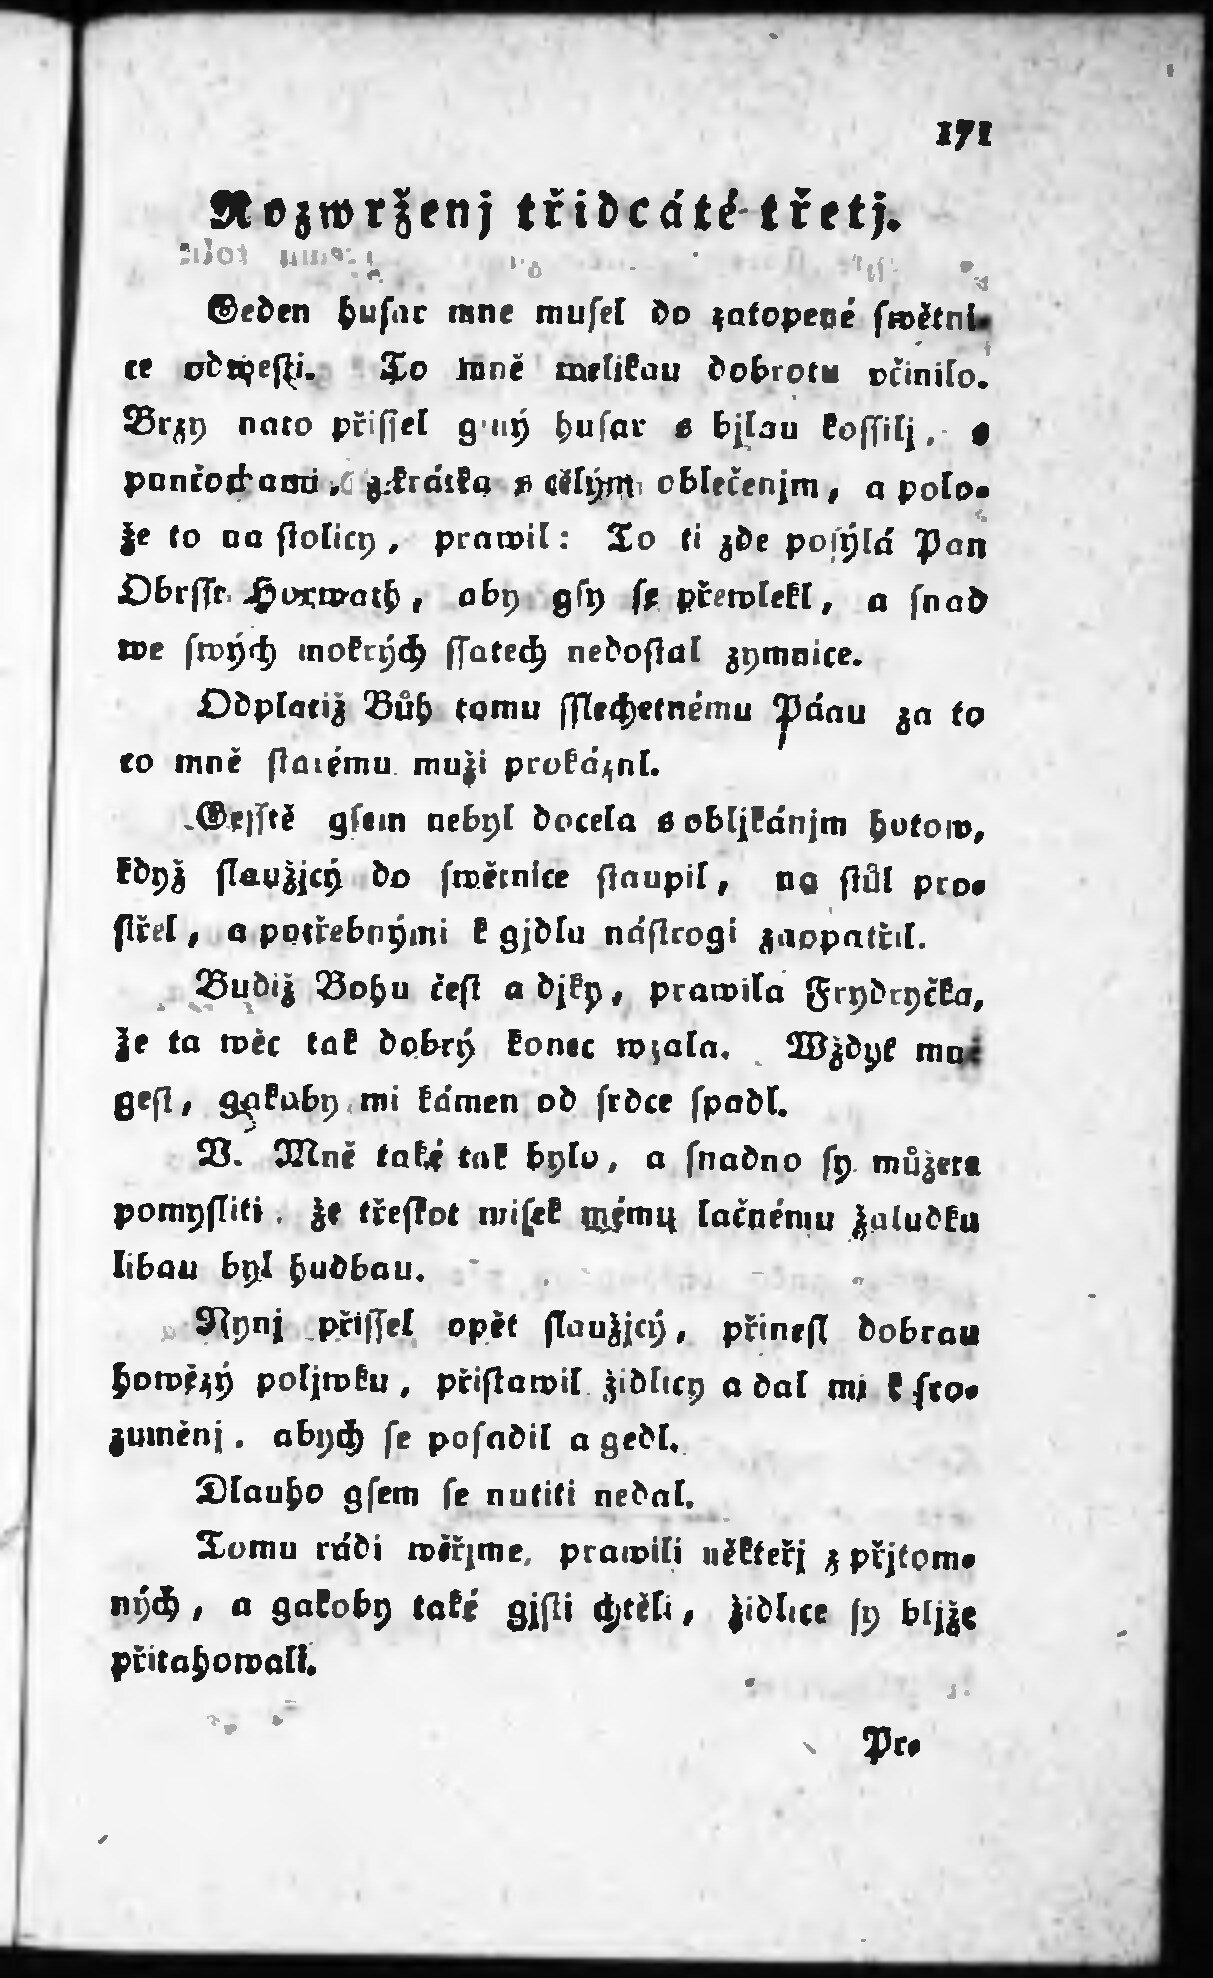 171
Rozwrženj třidcáté třetj.
Geden husar mne musel do zatopené swětni-
ce odwesti. To mně welikau dobrotu včinilo.
Brzy nato přissel giný husar s bjlau kossilj, s
punčochami, zkrátka s cělým oblečenjm, a polo-
že to na stolicy, prawil: To ti zde posýlá Pan
Obrsst Horwath, aby gsy se přewlekl, a snad
we swých mokrých ssatech nedostal zymnice.
Odplatiž Bůh tomu sslechetnému Pánu za to
co mně starému muži prokázal.
Gesstě gsem nebyl docela s obljkánjm hotow,
když slaužjcý do swětnice staupil, na stůl pro-
střel, a potřebnými k gjdlu nástrogi zaopatřil.
Budiž Bohu čest a djky, prawila Frydryčka,
že ta wěc tak dobrý konec wzala. Wždyk mně
gest, gakoby mi kámen od srdce spadl.
V. Mně také tak bylo, a snadno sy můžete
pomysliti, že třeskot misek mému lačnému žaludku
libau byl hudbau.
Nynj přissel opět slaužjcý, přinesl dobrau
howězý poljwku, přistawil židlicy a dal mi k sro-
zuměnj, abych se posadil a gedl.
Dlauho gsem se nutiti nedal.
Tomu rádi wěřjme, prawili někteřj z přjtom-
ných, a gakoby také gjsti chtěli, židlice sy bljže
přitahowali.
Pr-